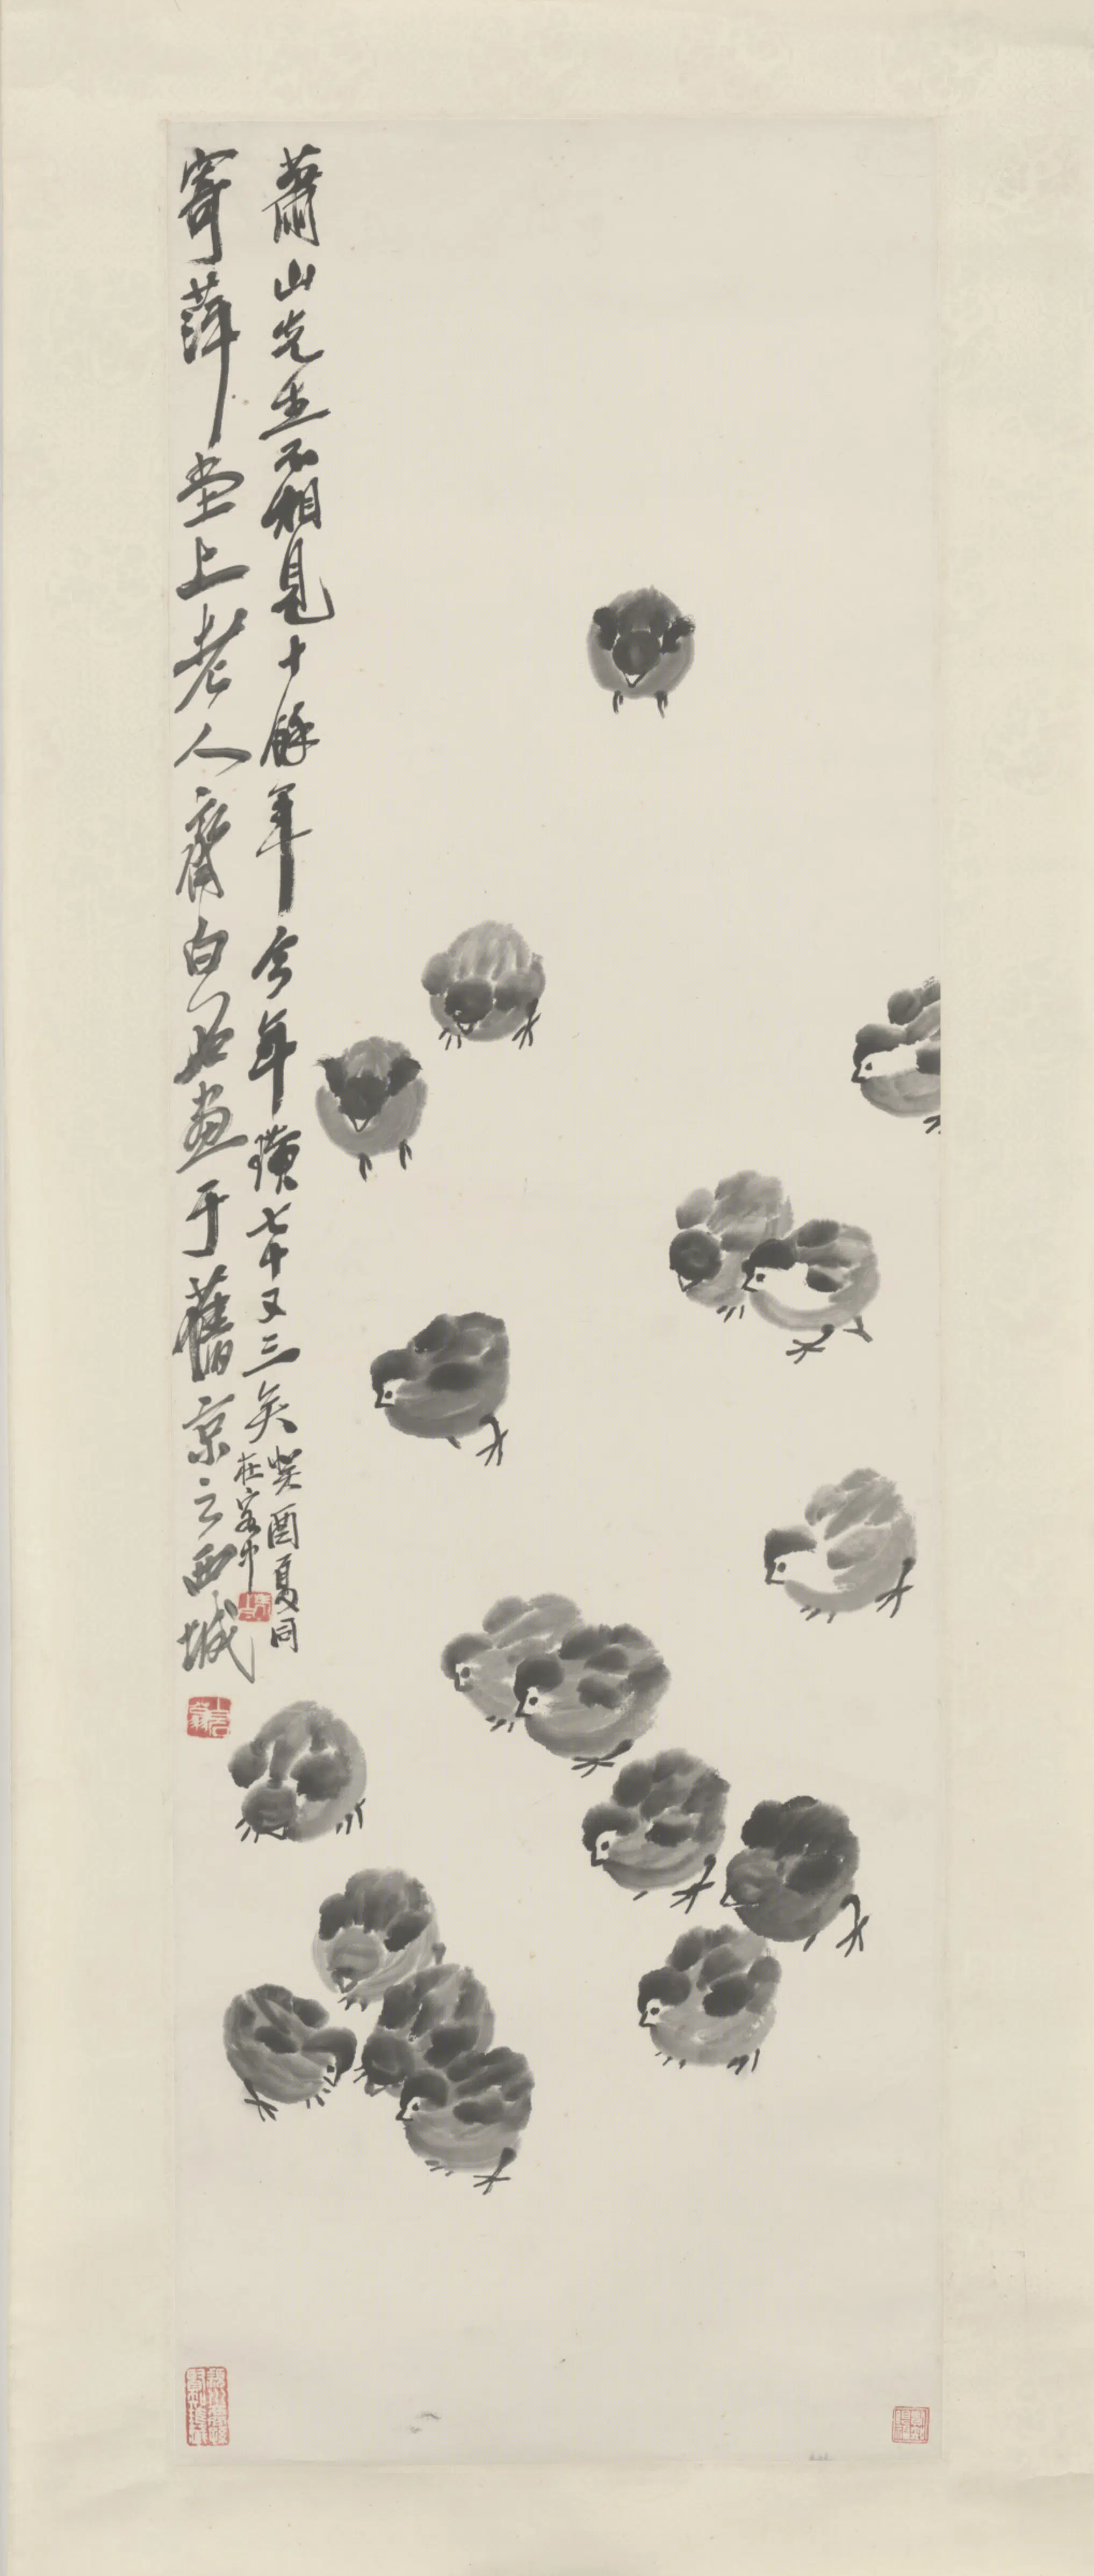 寄萍堂上老人齊白石畫于舊京之西城
蕭山先生不相見十餘年今年璜七十又三矣
癸酉夏同
在客中